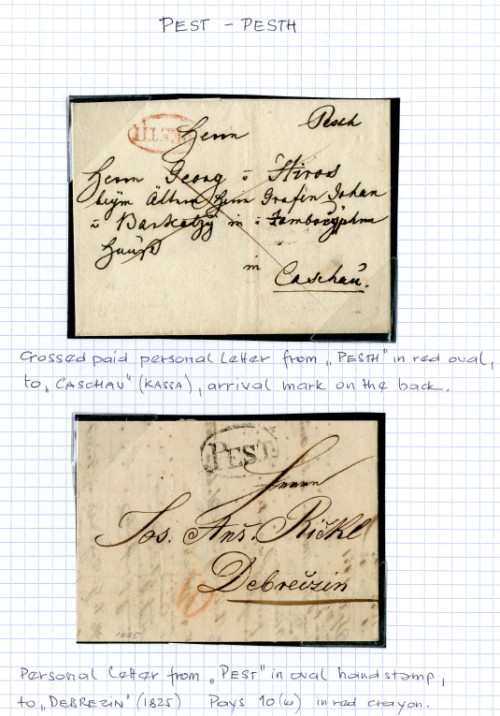 PEST – PESTH
PESTH
Pesch
Herrn
Herrn Georg v Hiros
beÿm Ältern Herrn Grafen Johan
v Barkotzÿ in
Hauß
in
Caschau.
Crossed paid personal letter from „PESTH" in red oval,
to „CASCHAU" (KASSA), arrival mark on the back.
PEST
Herrn
Jos. Ans. Rickl
Debreizin
10
1825
Personal letter from „PEST" in oval handstamp,
to „DEBREZIN" (1825) Pays 10(w) in red crayon.